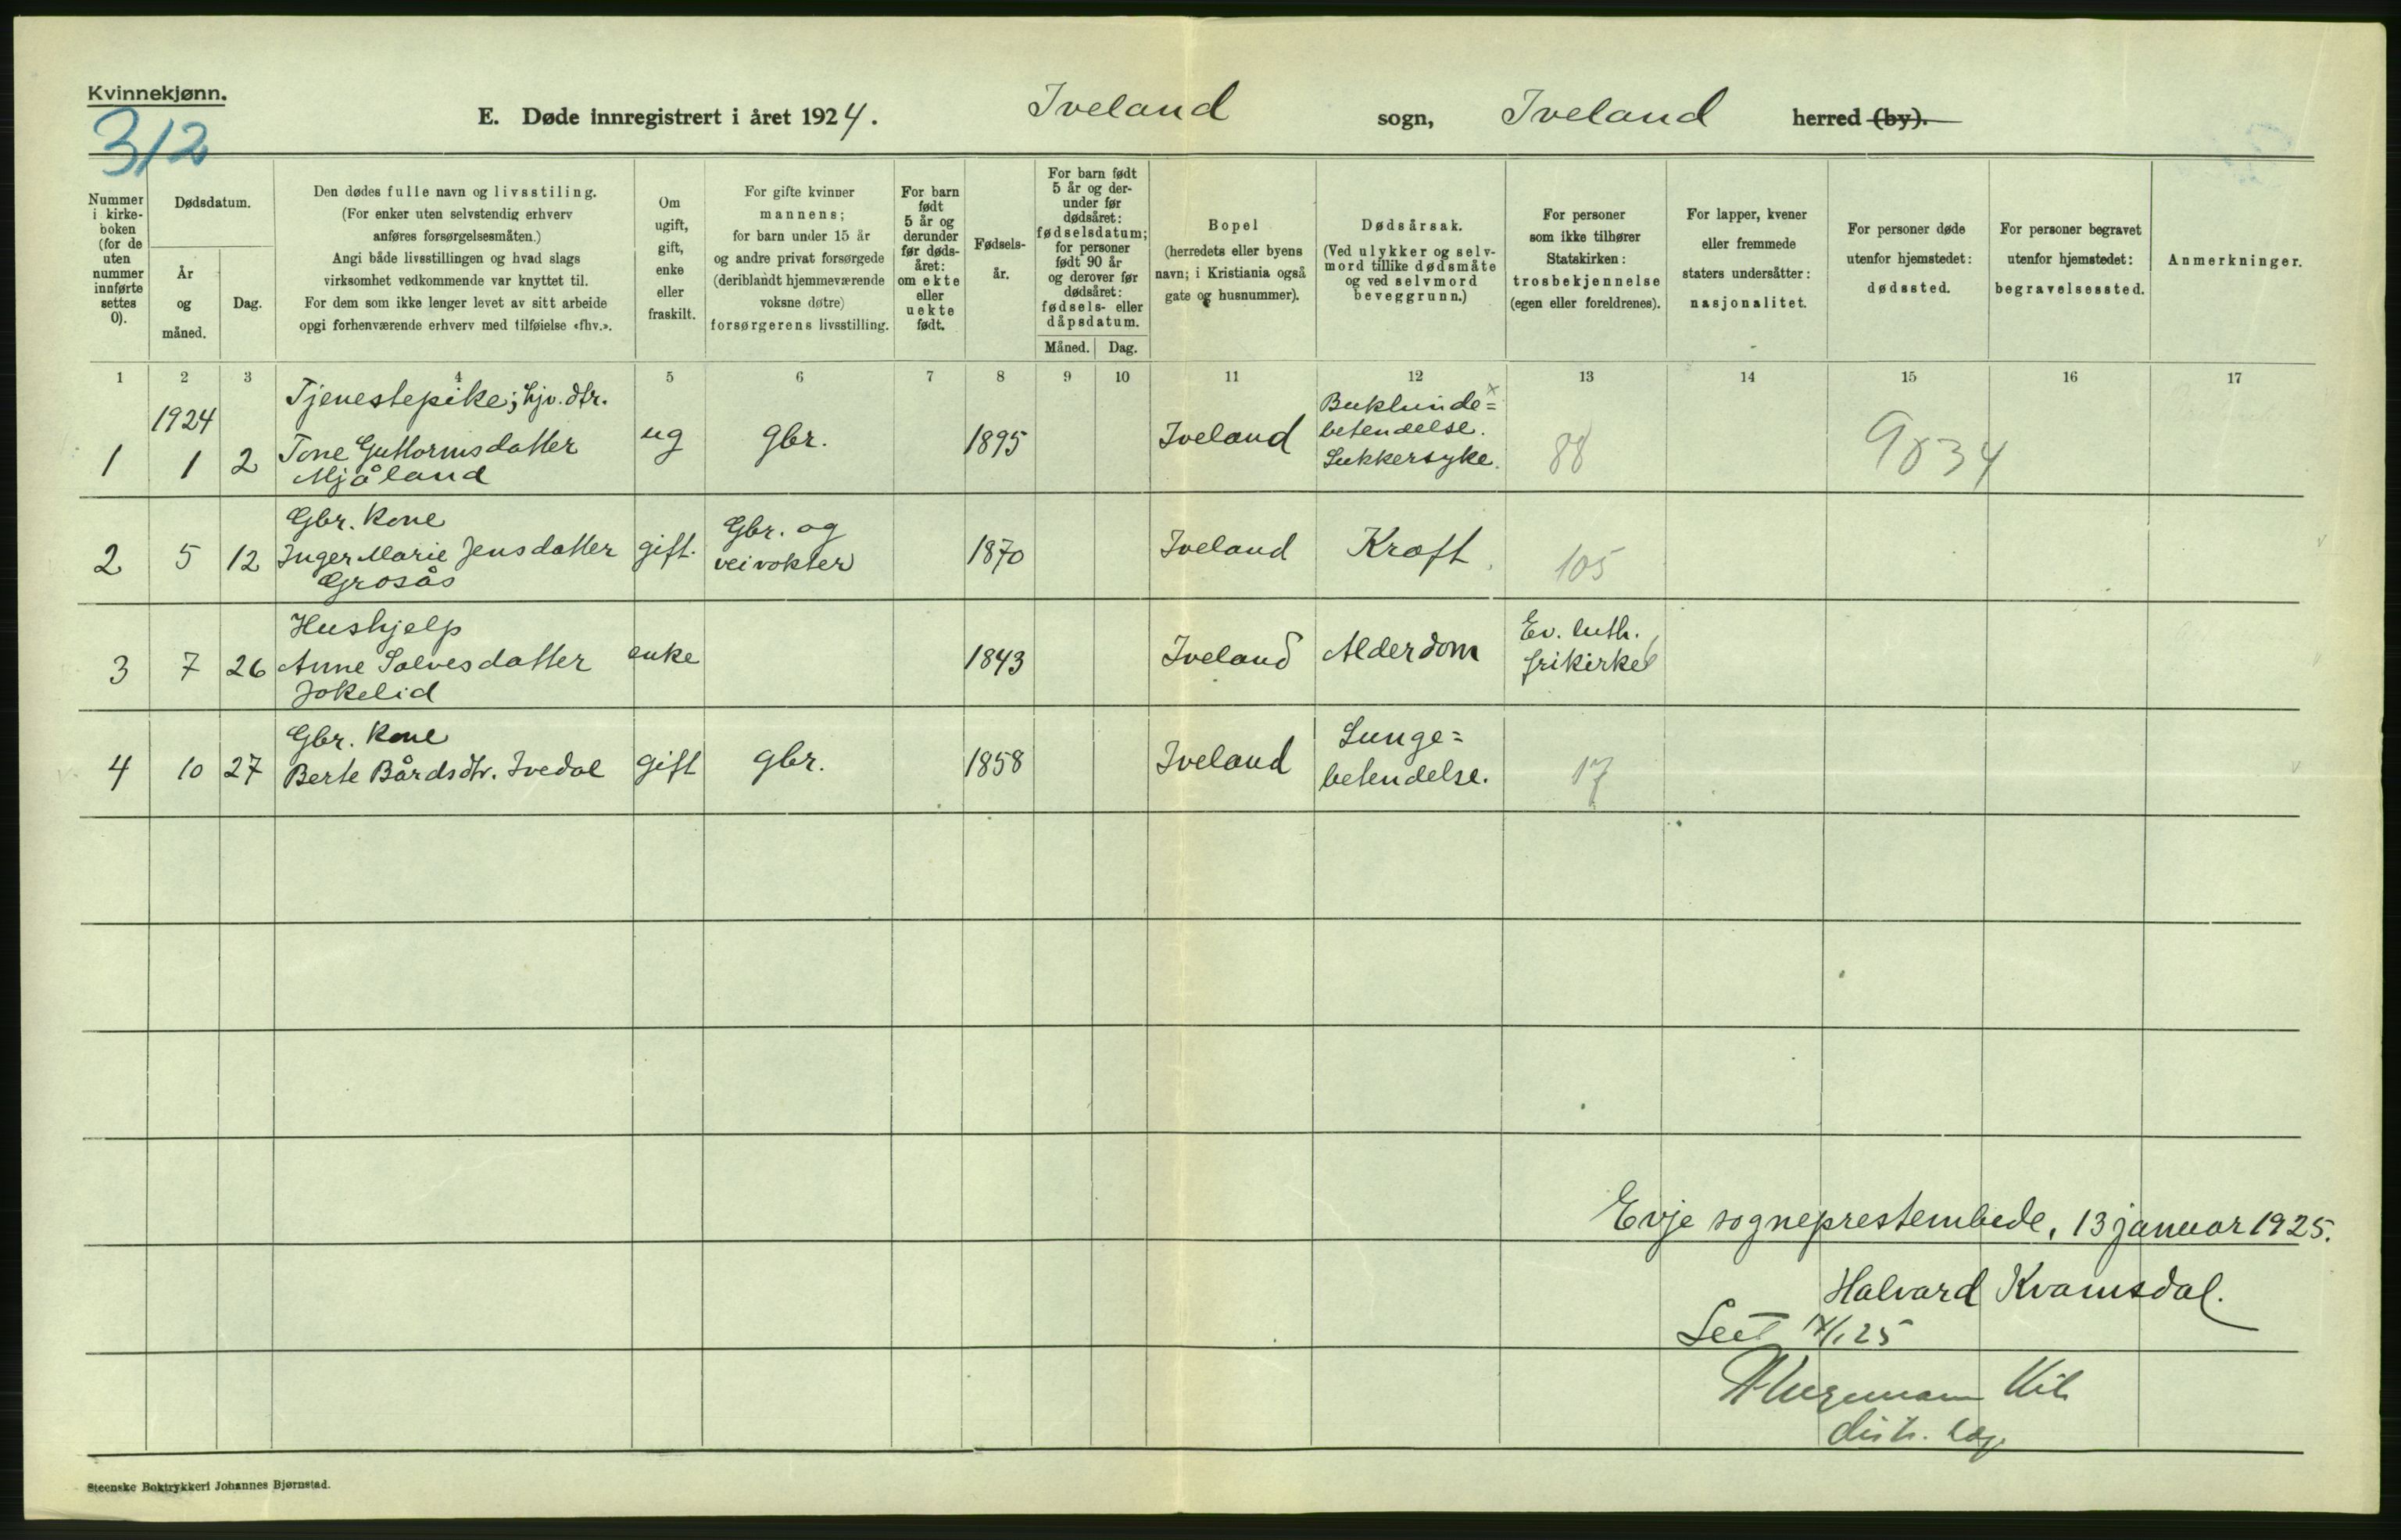 Kvinnekjønn.
312
E. Døde innregistrert i året 1924. Iveland sogn, Iveland herred (by).
Nummer i kirke-
boken
(for de
uten
nummer
innførte
settes
0).
Dødsdatum.
År
og
måned.
Dag.
Den dødes fulle navn og livsstiling.
(For enker uten selvstendig erhverv
anføres forsørgelsesmåten.)
Angi både livsstillingen og hvad slags
virksomhet vedkommende var knyttet til.
For dem som ikke lenger levet av sitt arbeide
opgi forhenværende erhverv med tilføielse «fhv.».
Om
ugift,
gift,
enke
eller
fraskilt.
For gifte kvinner
mannens;
for barn under 15 år
og andre privat forsørgede
(deriblandt hjemmeværende
voksne døtre)
forsørgerens livsstilling.
For barn
født
5 år og
derunder
før døds-
året:
om ekte
eller
uekte
født.
Fødsels-
år.
For barn født
5 år og der-
under før
dødsåret:
fødselsdatum;
for personer
født 90 år
og derover før
dødsåret:
fødsels- eller
dåpsdatum.
Måned. Dag.
Bopel
(herredets eller byens
navn; i Kristiania også
gate og husnummer).
Dødsårsak.
(Ved ulykker og selv-
mord tillike dødsmåte
og ved selvmord
beveggrunn.)
For personer
som ikke tilhører
Statskirken:
trosbekjennelse
(egen eller foreldrenes).
For lapper, kvener
eller fremmede
staters undersåtter:
nasjonalitet.
For personer døde
utenfor hjemstedet:
dødssted.
For personer begravet
utenfor hjemstedet:
begravelsessted.
Anmerkninger.
1 2 3 4 5 6 7 8 9 10 11 12 13 14 15 16 17
1924
1 1 2
Tjenestepike; hjv. dtr.
Tone Guttormsdatter
Mjåland
ug gbr. 1895 Iveland
Bukhinde=
betendelse.
Sukkersyke.
88 9834
2 5 12
Gbr. Kone
Inger Marie Jensdatter
Grosås
gift.
Gbr. og
veivokter
1870 Iveland Kræft 105
3 7 26
Hushjelp
Anne Salvesdatter
Jokelid
enke 1843 Iveland Alderdom
Ev. luth.
frikirke
4 10 27
Gbr. Kone
Berte Bårdsdtr. Ivedal
gift gbr. 1858 Iveland
Lunge=
betendelse.
17
Evje sogneprestembede, 13 januar 1925.
Halvard Kvamsdal.
Sett /1 25
distr. læg.
Steenske Boktrykkeri Johannes Bjørnstad.